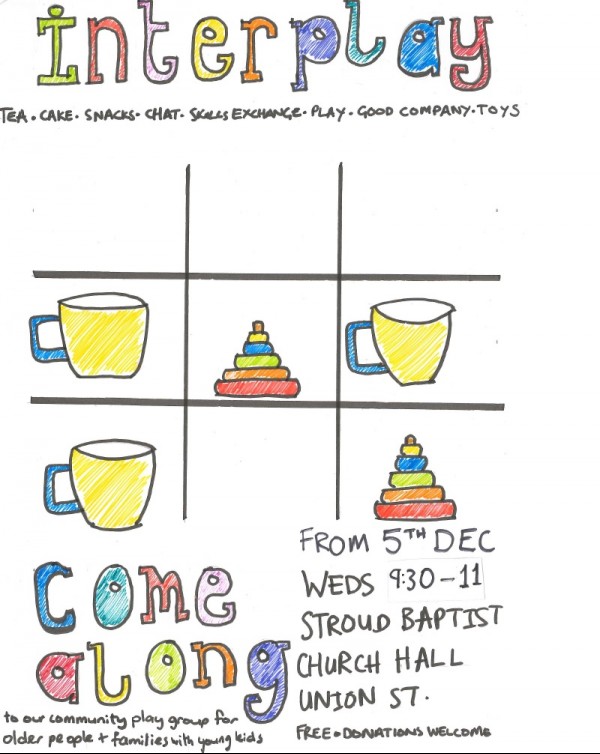 interplay
TEA • CAKE • SNACKS • CHAT • SKILLS EXCHANGE • PLAY • GOOD COMPANY • TOYS
FROM 5TH DEC
WEDS 9:30 - 11
STROUD BAPTIST
CHURCH HALL
UNION ST.
FREE • DONATIONS WELCOME
come
along
to our community play group for
older people + families with young kids